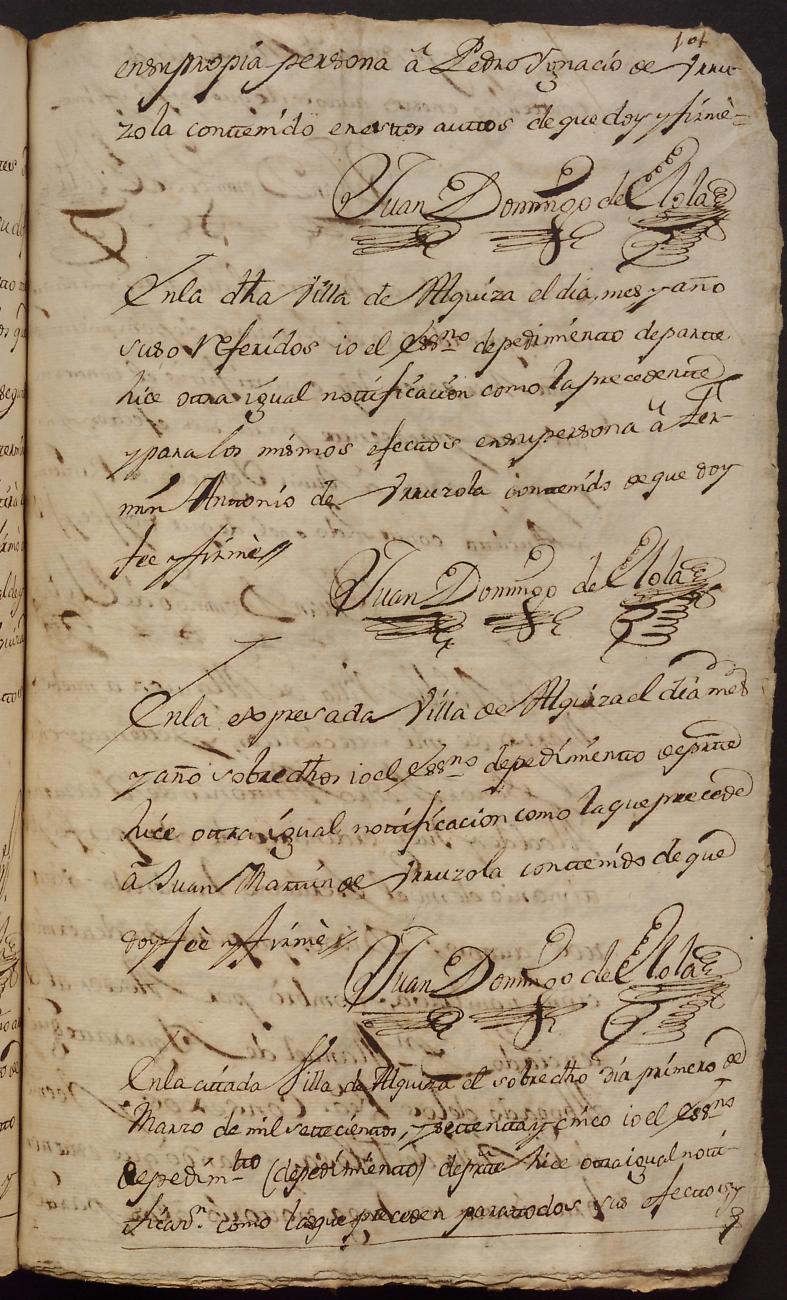 101
ensu propia persona â Pedro Ygnacio de Yrru-
zola contenido enestos auttos de que doy y firmè=
Juan Domingo de Elola
Enla dha Villa de Alquiza el dia, mes y año
suso Referidos io el Essno depedimiento departte
hice ottra igual nottificacion como la precedentte
y para los mismos efecttos ensu persona â Fer-
min Anttonio de Yrruzola conttenido de que doy
fee y firmè//
Juan Domingo de Elola
Enla expresada Villa de Alquiza el dia mes
y año sobredhos io el Essno depedimientto departte
hice ottra igual nottificacion como la que precede
â Juan Marttin de Yrruzola conttenido de que
doy feè y firmè//
Juan Domingo de Elola
Enla cittada Villa de Alquiza el sobredho dia primero de
Marzo de mil settecienttos, y settentta y cinco io el Essno
depedim-tto (depedimientto) departte hice ottra igual notti-
ficaon. como las que preceden para todos sus efecttos y